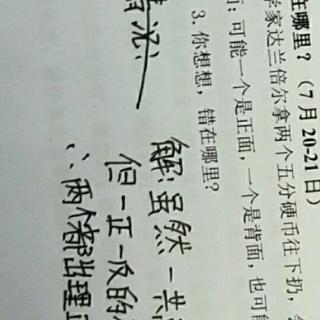 在哪里？（7月20-21日）
学家达兰倍尔拿两个五分硬币往下扔，
面；可能一个是正面，一个是背面，也可能
3. 你想想，错在哪里？
情况
解：虽然一共
但一正一反的
∴两个都出现正